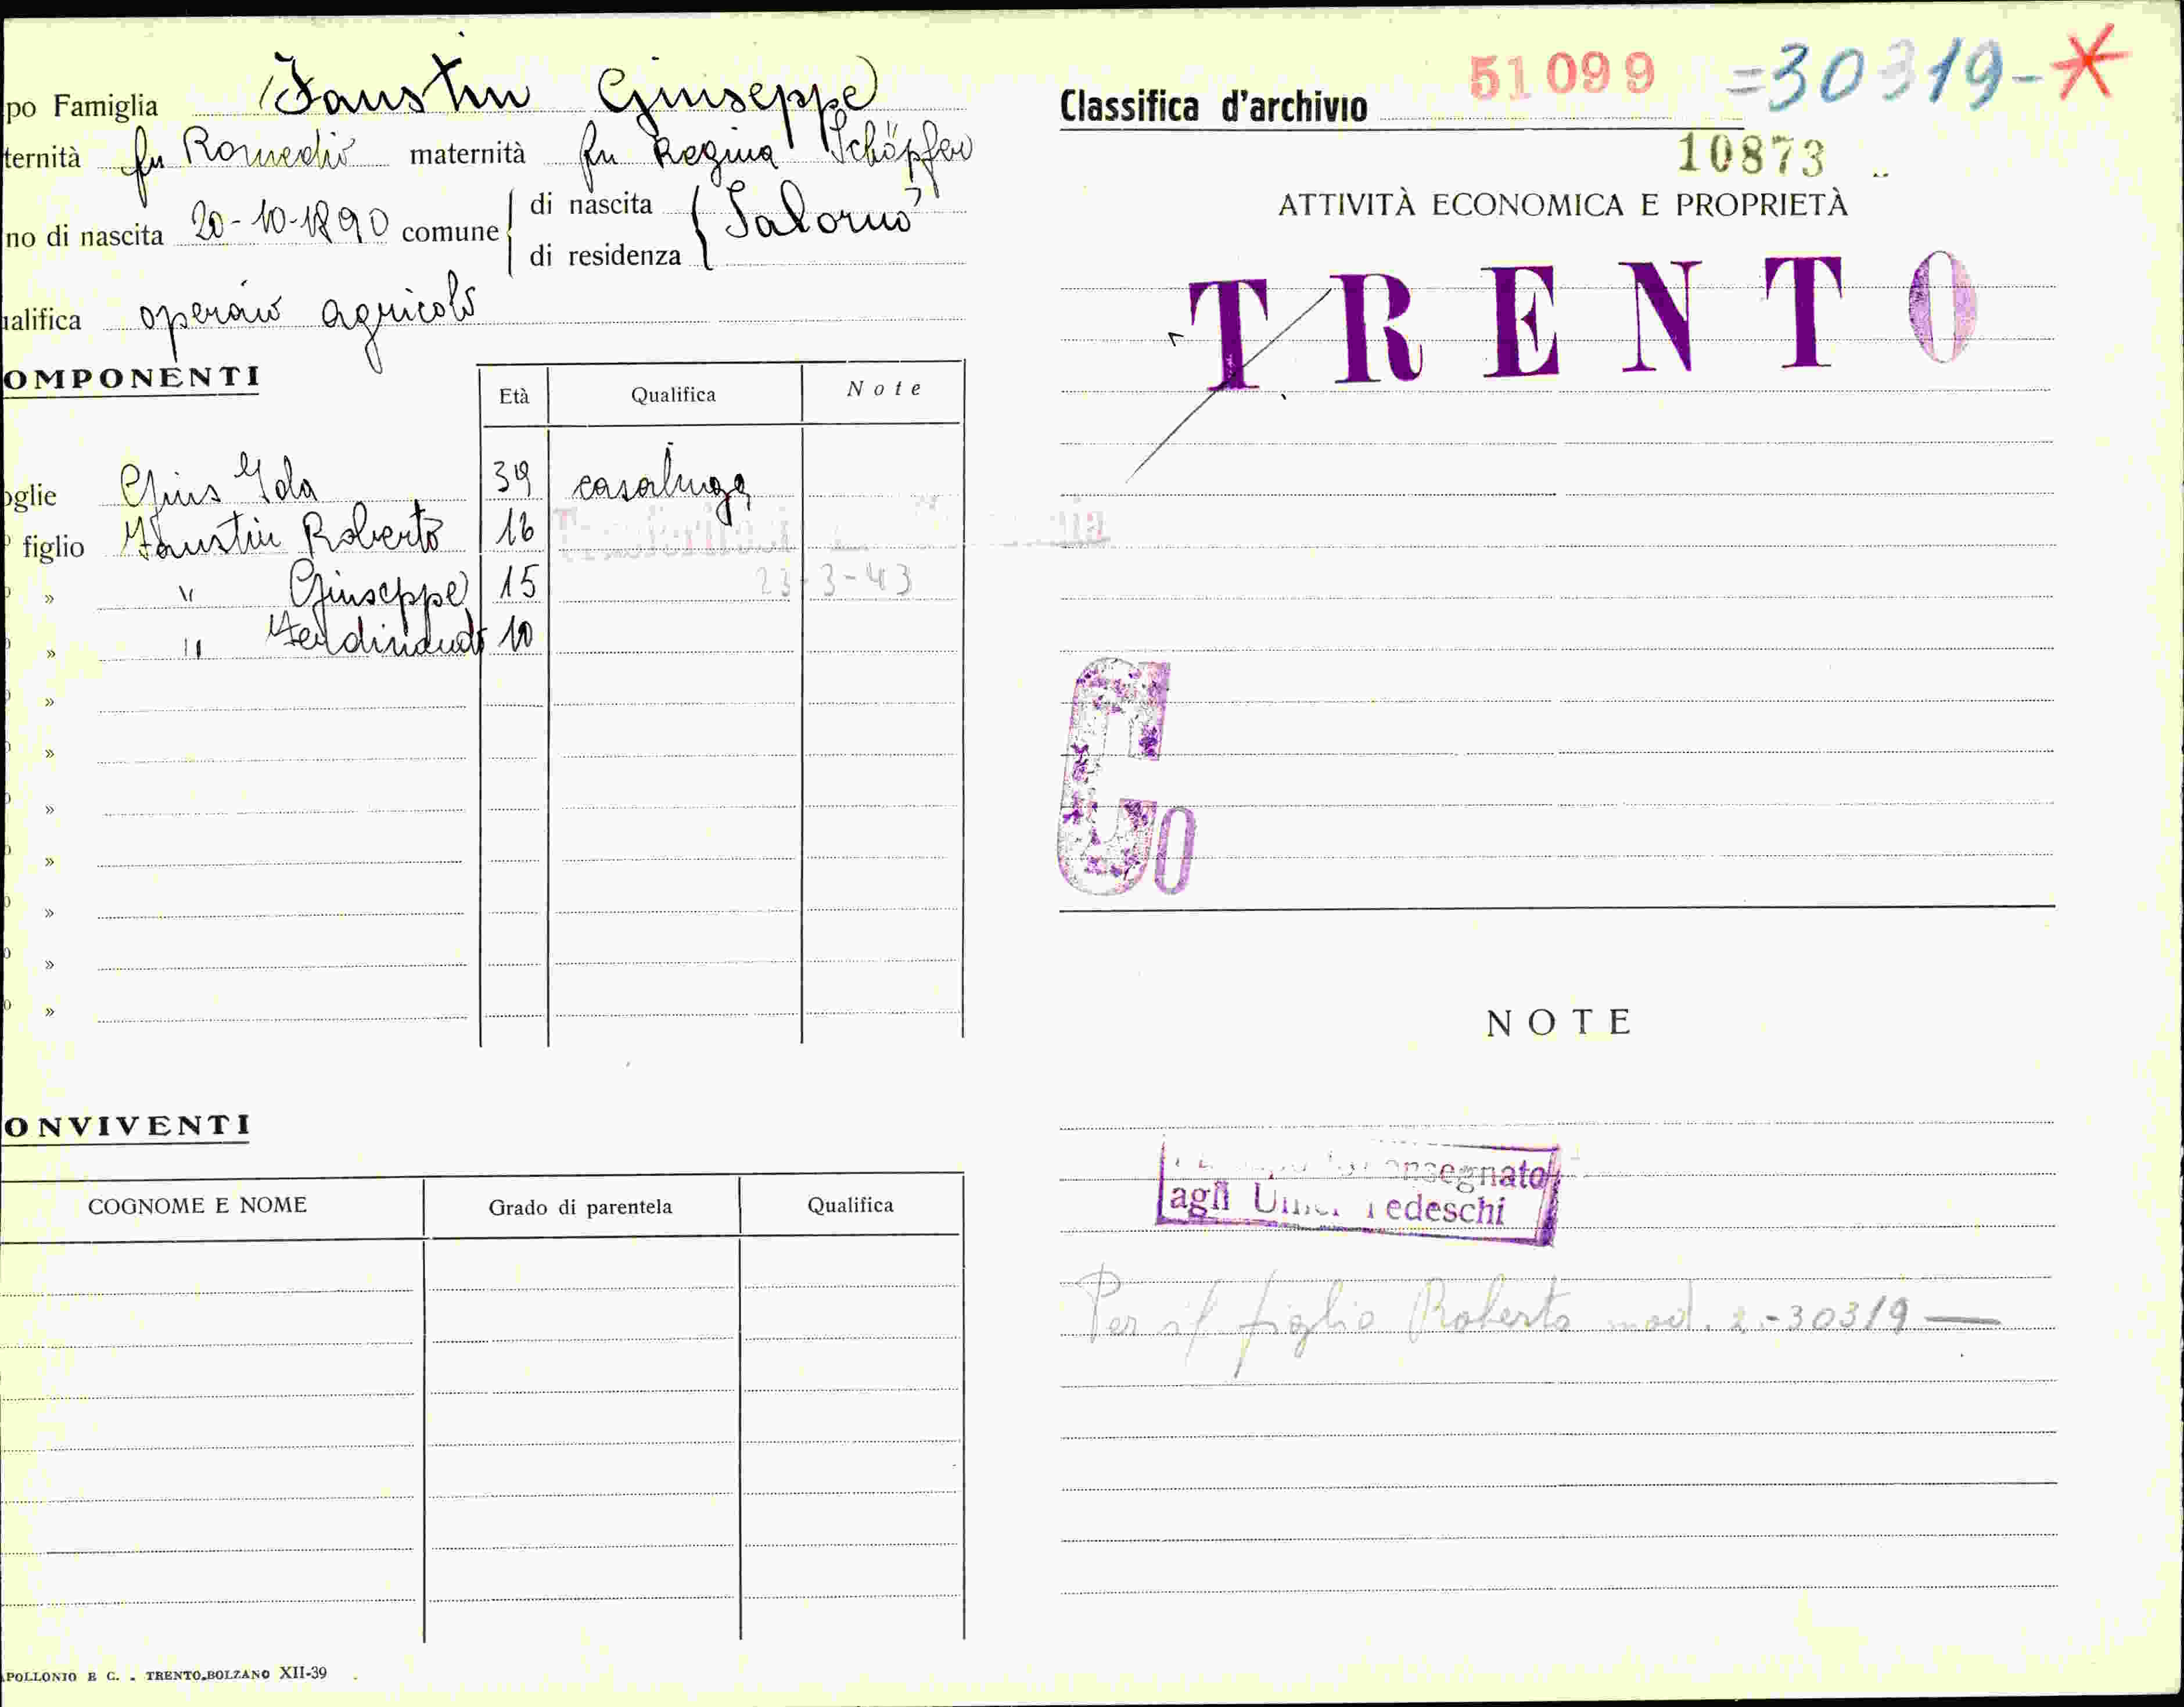 po Famiglia Faustin Giuseppe
ternità fu Romedio maternità fu Regina Schöpfer
no di nascita 20-10-1890 comune di nascita Salorno
di residenza
alifica operaio agricolo
OMPONENTI
Età Qualifica Note
oglie Gius Ida 39 casalinga
figlio Faustin Roberto 16
» " Giuseppe 15 23-3-43
» " Ferdinando 10
»
»
»
»
»
»
»
ONVIVENTI
COGNOME E NOME Grado di parentela Qualifica
POLLONIO E C. - TRENTO-BOLZANO XII-39
51099 =30319-*
Classifica d'archivio
10873
ATTIVITÀ ECONOMICA E PROPRIETÀ
TRENTO
G0
NOTE
onsegnato
agli Uffici Tedeschi
Per il figlio Roberto mod. 2.-30319—